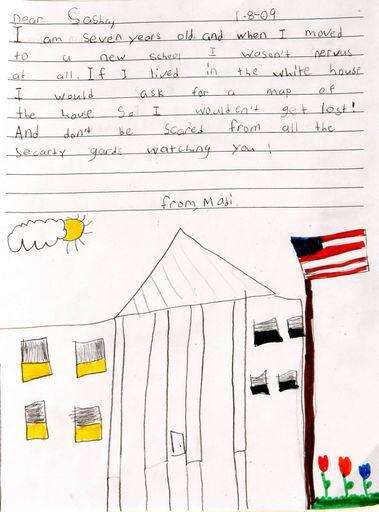 Dear Sashay 1-8-09
I am seven years old and when I moved
to a new school I wasen't nervus
at all. If I lived in the white house
I would ask for a map of
the house So I wouldn't get lost!
And don't be scared from all the
secarty gards watching you!
from, Madi